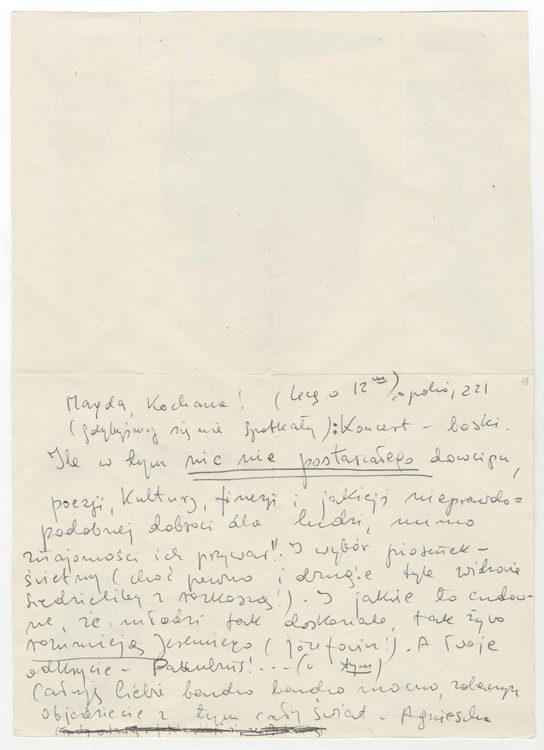 Magda, Kochana! (lecę o 12, pokój, 221
(gdybyśmy się nie spotkały): Koncert – boski.
Ile w tym nic nie postarzałego dowcipu,
poezji, Kultury, finezji i jakiejś nieprawdo=
podobnej dobroci dla ludzi, mimo
znajomości ich przywar!! I wybór piosenek –
świetny (choć pewno i drugie tyle widownia
siedzieliby z rozkoszą!). I jakie to cudow-
ne, że młodzi tak doskonale, tak żywo
rozumieją Jeremiego (Józefowicz!). A Twoje
odkrycie – Pakulnis!...
Całuję Ciebie bardzo bardzo mocno,
objedziecie z tym cały świat – Agnieszka